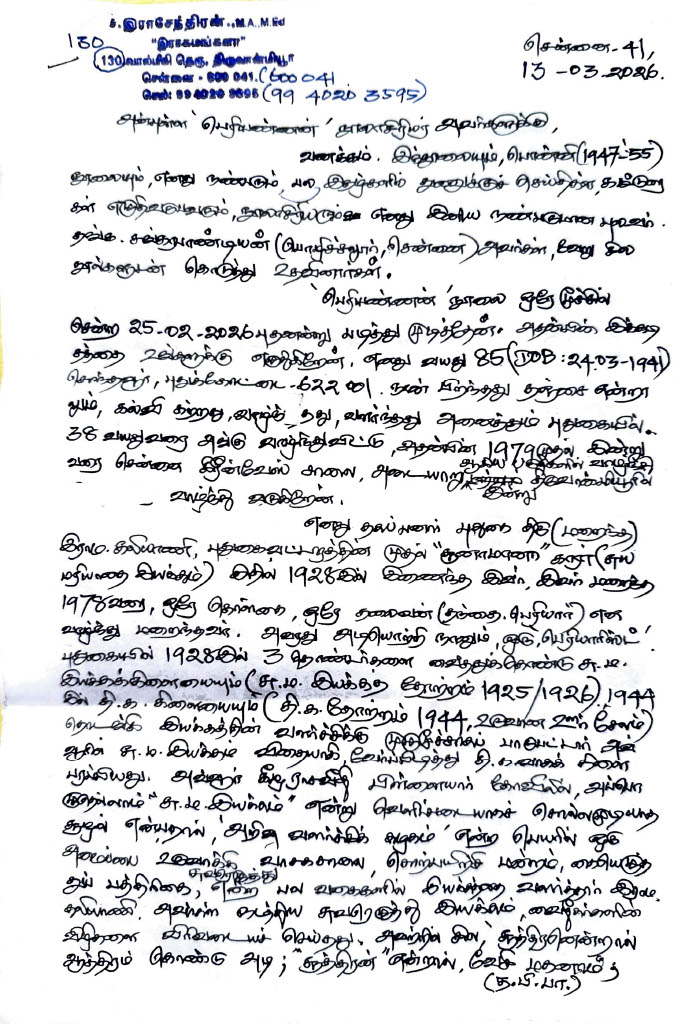 க. இராசேந்திரன்., M.A., M.Ed
130
"இராகமங்கலா"
(130) வால்மீகி தெரு, திருவான்மியூர்
சென்னை - 600 041. (600 041
செல்: 99 4020 3595 (99 4020 3595)
சென்னை-41,
13-03-2026.
அன்புள்ள 'பெரியண்ணன்' நூலாசிரியர் அவர்களுக்கு,
வணக்கம். இந்நூலையும், பொன்னி (1947-'55)
நூலையும், எனது நண்பரும், பல இதழ்களில் துணுக்குச் செய்திகள், கட்டுரை
கள் எழுதிவருபவரும், நூலாசிரியருமான எனது இனிய நண்பருமான புலவர்.
தங்க. சங்கபாண்டியன் (பொழிச்சலூர், சென்னை) அவர்கள், வேறு சில
நூல்களுடன் கொடுத்து உதவினார்கள்.
'பெரியண்ணன்' நூலை ஒரே மூச்சில்
சென்ற 25-02-2026 புதனன்று படித்து முடித்தேன். அதன்பின் இக்கடி
தத்தை உங்களுக்கு எழுதுகிறேன். எனது வயது 85 (DOB: 24-03-1941)
சொந்தஊர், புதுக்கோட்டை-622 001. நான் பிறந்தது தஞ்சை என்றா
லும், கல்வி கற்றது, வாழ்ந்தது, வளர்ந்தது அனைத்தும் புதுகையில்.
38 வயதுவரை அங்கு வாழ்ந்துவிட்டு, அதன்பின் 1979 முதல் இன்று
வரை சென்னை கிரீன்வேஸ் சாலை, அடையாறு ஆகிய பகுதிகளில் வாழ்ந்து இன்று திருவான்மியூரில்
வாழ்ந்து வருகிறேன்.
எனது தகப்பனார் புதுகை திரு (மறைந்த)
இராம. கலியாணி, புதுகைவட்டாரத்தின் முதல் "சூனாமானா" காரர் (சுய
மரியாதை இயக்கம்) இதில் 1928இல் இணைந்த இவர், இவர் மறைந்த
1978வரை, ஒரே கொள்கை, ஒரே தலைவன் (தந்தை. பெரியார்) என
வாழ்ந்து மறைந்தவர். அவரது அடியொற்றி நானும், ஒரு, பெரியாரிஸ்ட்'
புதுகையில் 1928இல் 3 தொண்டர்களை வைத்துக்கொண்டு சு.ம.
இயக்கக்கிளையையும் (சு.ம. இயக்கத் தோற்றம் 1925/1926). 1944
இல் தி.க. கிளையையும் (தி.க தோற்றம் 1944, உருவான ஊர் சேலம்)
தொடங்கி இயக்கத்தின் வளர்ச்சிக்கு முழுமூச்சாய் பாடுபட்டார் அவ்
ஊரில் சு.ம. இயக்கம் விதையாகி, வேர்பிடித்து தி.கவாகக் கிளை
பரப்பியது. அவ்வூர் கீழராசவீதி பிள்ளையார் கோவிலில், அப்போ
முதெல்லாம் "சு.ம. இயக்கம்" என்று வெளிப்படையாகச் சொல்லமுடியாத
சூழல் என்பதால், 'அறிவு வளர்ச்சிக் கழகம்' என்ற பெயரில் ஒரு
அமைப்பை உருவாக்கி வாசகசாலை, சொற்பயிற்சி மன்றம், கையெழுத்
துப் பத்திரிகை, சுவரெழுத்து என்ற பல வகைகளில் இயக்கத்தை வளர்த்தார் இராம.
கலியாணி. அவர்கள் நடத்திய சுவரெழுத்து இயக்கம், வைதீகர்களின்
விழிகளை விரிவடையச் செய்தது. அவற்றில் சில, 'சூத்திரனென்றால்
ஆத்திரம் கொண்டு அடி; "சூத்திரன்" என்றால், வேசி மகனாம்';
(த.பி.பா.)